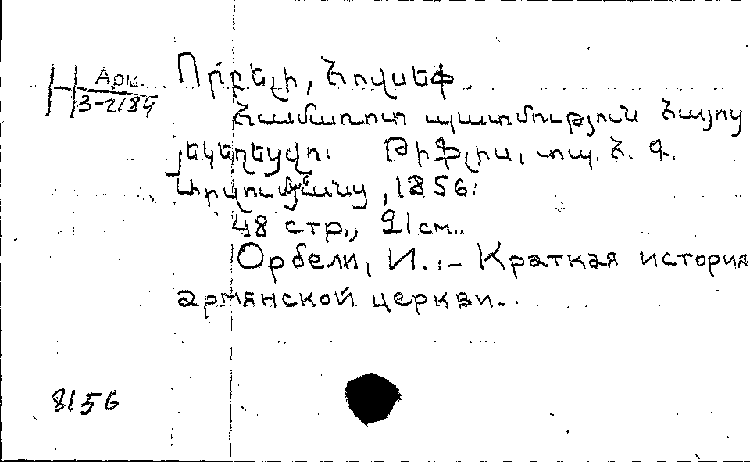 Н Арм. 3-2189
Որբելի, Հովսեփ
Համառոտ պատմություն Հայոց
յեկեղեցվո։ Թիֆլիս, տպ. Հ. Գ.
1856։
48 стр., 21 см..
Орбели, И.։- Краткая история
армянской церкви.
8156